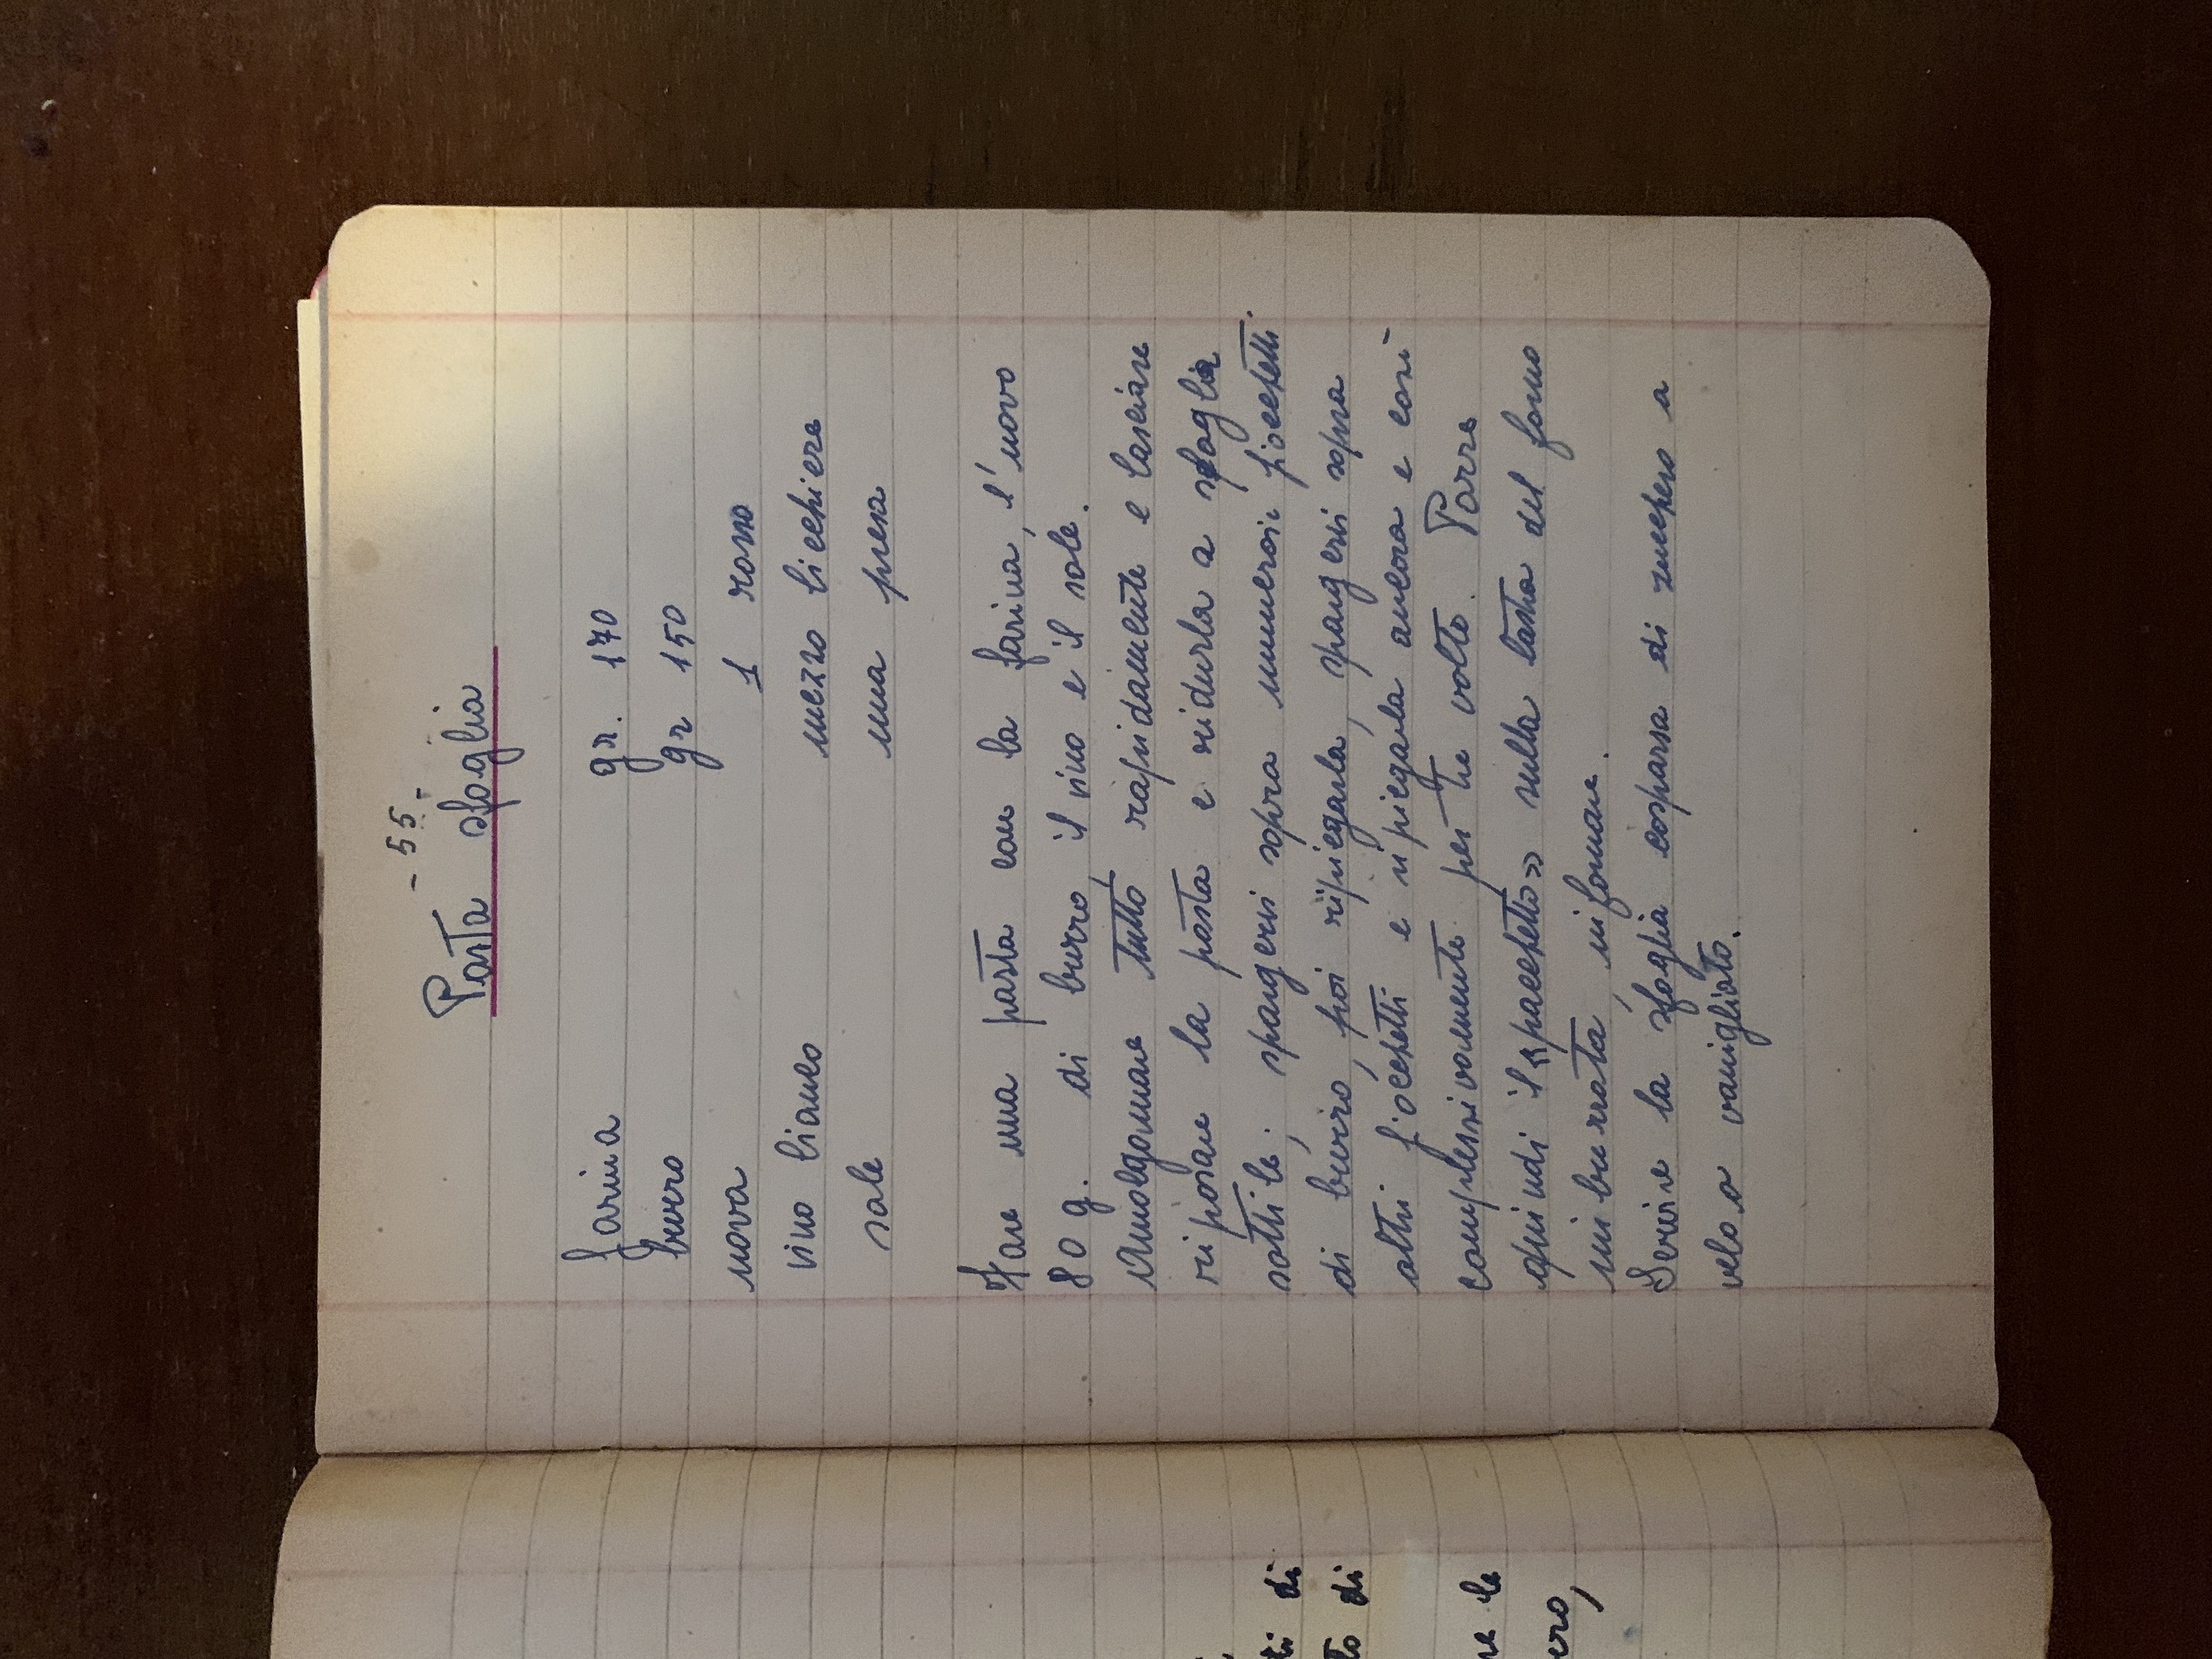 - 55 -
Pasta sfoglia
farina gr. 170
burro gr 150
uova 1 rosso
vino bianco mezzo bicchiere
sale una presa
Fare una pasta con la farina, l'uovo
80 g. di burro, il vino e il sale.
Amalgamare tutto rapidamente e lasciare
riposare la pasta e ridurla a sfoglia
sottile; spargervi sopra numerosi fiocchetti
di burro, poi ripiegarla, spargervi sopra
altri fiocchetti e ripiegarla ancora e così
complessivamente per tre volte. Porre
quindi il «pacchetto» sulla lastra del forno
imburrata, infornare.
Servire la sfoglia cosparsa di zucchero a
velo o vanigliato.
ti di
to di
re le